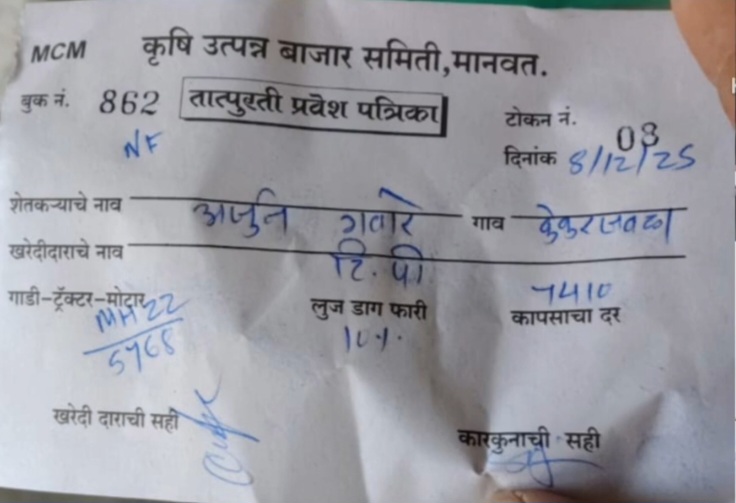 MCM कृषि उत्पन्न बाजार समिती,मानवत.
बुक नं. 862 तात्पुरती प्रवेश पत्रिका
टोकन नं. 08
NF
दिनांक 8/12/25
शेतकऱ्याचे नाव अर्जुन गवारे गाव केकरजवळा
खरेदीदाराचे नाव टि. पी
गाडी-ट्रॅक्टर-मोटार लुज डाग फारी 7410
MH 22 10% कापसाचा दर
5768
खरेदी दाराची सही
कारकुनाची सही